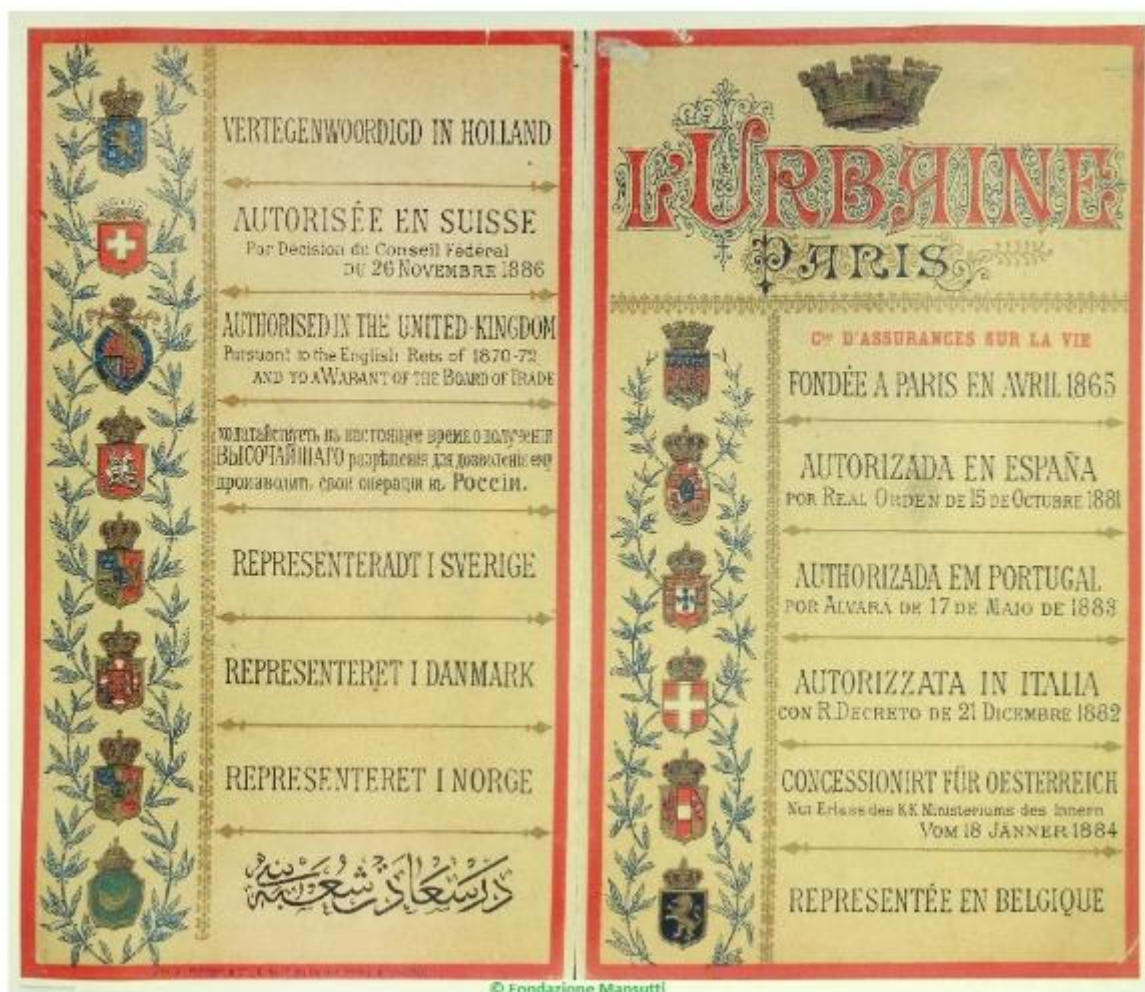 VERTEGENWOORDIGD IN HOLLAND
AUTORISÉE EN SUISSE
Par Décision du Conseil Fédéral
DU 26 NOVEMBRE 1886
AUTHORISED IN THE UNITED-KINGDOM
Pursuant to the English Rets of 1870-72
AND TO A WARANT OF THE BOARD OF TRADE
ходатайствуетъ въ настоящее время о полученіи
ВЫСОЧАЙШАГО разрѣшенія для дозволенія ему
производить свои операціи въ Россіи.
REPRESENTERADT I SVERIGE
REPRESENTERET I DANMARK
REPRESENTERET I NORGE
درسعادت شعبه سی
L'URBAINE
PARIS
Cie D'ASSURANCES SUR LA VIE
FONDÉE A PARIS EN AVRIL 1865
AUTORIZADA EN ESPAÑA
POR REAL ORDEN DE 15 DE OCTUBRE 1881
AUTHORIZADA EM PORTUGAL
POR ALVARÁ DE 17 DE MAIO DE 1883
AUTORIZZATA IN ITALIA
CON R. DECRETO DE 21 DICEMBRE 1882
CONCESSIONIRT FÜR OESTERREICH
Mit Erlass des K.K. Ministeriums des Innern
VOM 18 JÄNNER 1884
REPRESENTÉE EN BELGIQUE
© Fondazione Mansutti